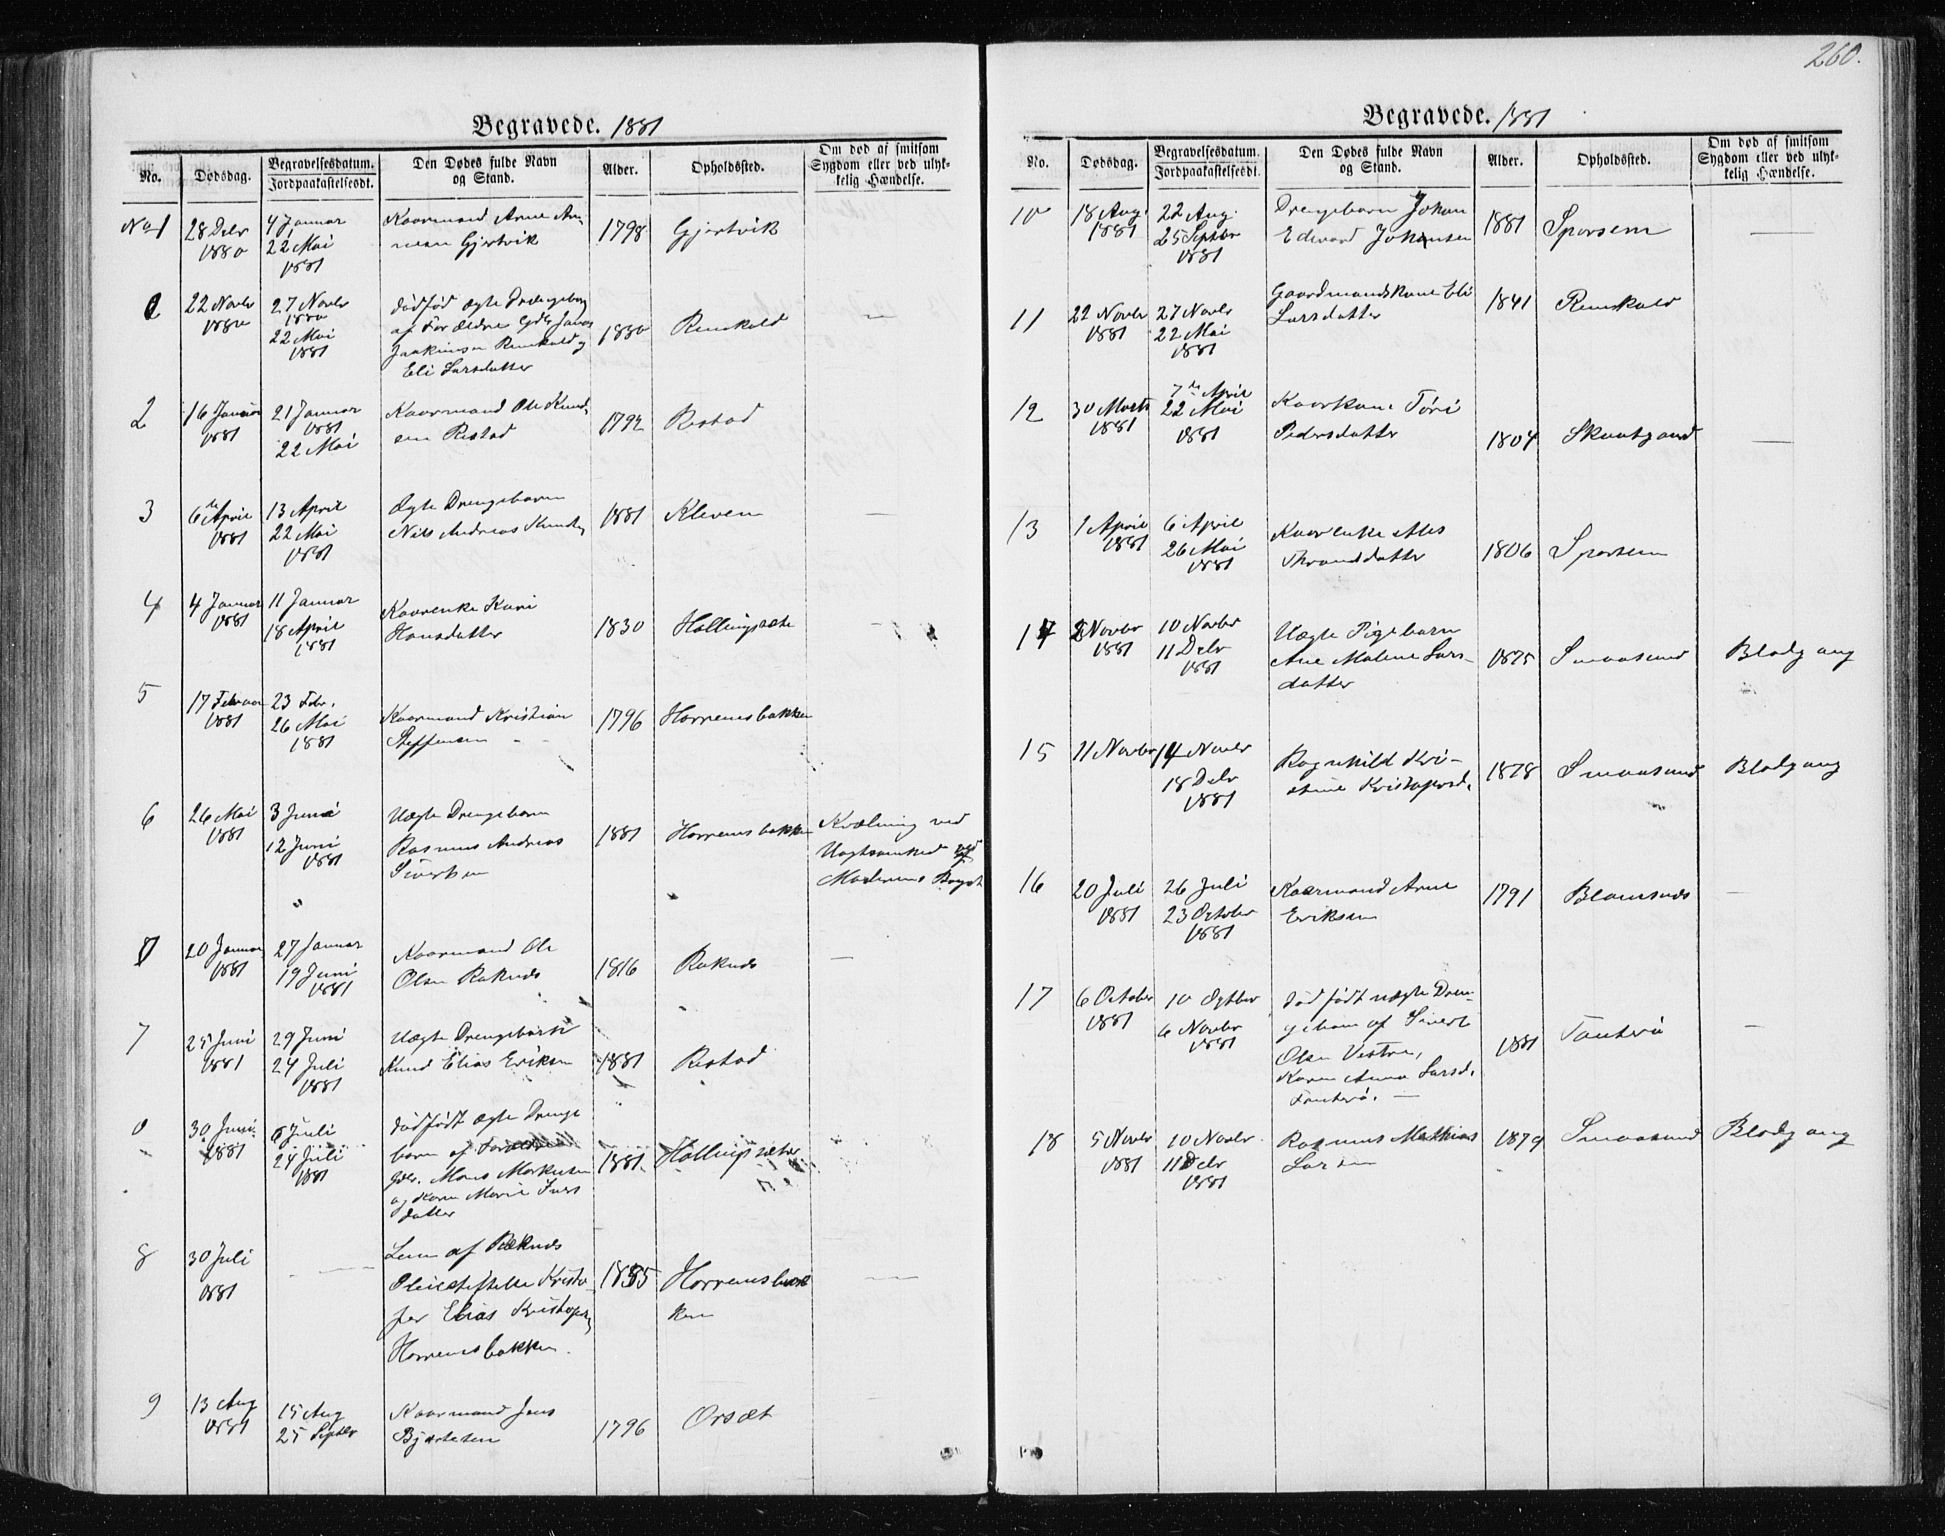 260.
Begravede. 1881
No.
Dødsdag.
Begravelsesdatum.
Jordpaakastelsesdt.
Den Dødes fulde Navn
og Stand.
Alder.
Opholdssted.
Om død af smitsom
Sygdom eller ved ulyk-
kelig Hændelse.
No 1
28 Debr
1880
4 Januar
22 Mai
1881
Kaarmand Arne Ar-
nesen Gjertvik
1798
Gjertvik
22 Novbr
1880
27 Novbr
1880
22 Mai
1881
dødfød ægte Drengebarn
af Forældre Gdbr Jonas
Joakimsen Remkald og
Eli Larsdatter
1880
Remkald
—
2
16 Januar
1881
21 Januar
1881
22 Mai
Kaarmand Ole Knud-
sen Restad
1792
Restad
3
6te April
1881
13 April
22 Mai
1881
Ægte Drengebarn
Nils Andreas Knuds
1881
Kleven
—
4
4 Januar
1881
11 Januar
18 April
1881
Kaarenke Kari
Hansdatter
1830
Hollingsæter
—
5
17 Februar
1881
23 Febr.
26 Mai
1881
Kaarmand Kristian
Steffensen
1796
Horremsbakken
6
26 Mai
1881
3 Juni
12 Juni
1881
Uægte Drengebarn
Rasmus Andreas
Sivertsen
1881
Horremsbakken
Kvælning ved
Uagtsomhed ved
Moderens Bryst
20 Januar
1881
27 Januar
19 Juni
1881
Kaarmand Ole
Olsen Raknes
1816
Raknes
—
7
25 Juni
1881
29 Juni
24 Juli
1881
Uægte Drengebarn
Knud Elias Eriksen
1881
Restad
0
30 Juni
1881
6 Juli
24 Juli
1881
dødfødt ægte Drenge
barn af Forældre
Gdbr. Mons Markusen
og Karen Marie Ivers
datter
1881
Hollingsæter
8
30 Juli
1881
—
Lem af Røknes
Pleiestiftelse Kristo-
fer Elias Kristofers
Horremsbakken.
1855
Horremsbak
ken
—
9
13 Aug
1881
15 Aug
25 Septbr
Kaarmand Jens
Bjørnsten
1796
Orsæt
Begravede. 1881
No.
Dødsdag.
Begravelsesdatum.
Jordpaakastelsesdt.
Den Dødes fulde Navn
og Stand.
Alder.
Opholdssted.
Om død af smitsom
Sygdom eller ved ulyk-
kelig Hændelse.
10
18 Aug.
1881
22 Aug.
25 Septbr
1881
Drengebarn Johan
Edvard Johansen
1881
Sporsem
—
11
22 Novbr
1881
27 Novbr
22 Mai
1881
Gaardmandskone Eli
Larsdatter
1841
Remkald
12
30 Marts
1881
7de April
22 Mai
1881
Kaarkone Tøri
Pedersdatter
1804
Skaatgaard
—
13
1 April
1881
6 April
26 Mai
1881
Kaarenke Ales
Throndsdatter
1806
Sporsem
14
2 Novbr
1881
10 Novbr
11 Debr
1881
Uægte Pigebarn
Ane Malene Lars-
datter
1875
Smaasund
Blodgang
15
11 Novbr
14 Novbr
18 Debr
1881
Ragnhild Kri-
stine Kristofersd.
1878
Smaasund
Blodgang
16
20 Juli
1881
26 Juli
23 October
1881
Kaarmand Arne
Eriksen
1791
Blomsnes
—
17
6 October
1881
10 Octbr
6 Novbr
1881
dødfødt uægte Dren-
gebarn af Sivert
Olsen Vestre,
Karen Anna Larsd.
Tauterø. —
1881
Tauterø
—
18
5 Novbr
1881
10 Novbr
11 Debr
1881
Rasmus Mathias
Larsen
1879
Smaasund
Blodgang